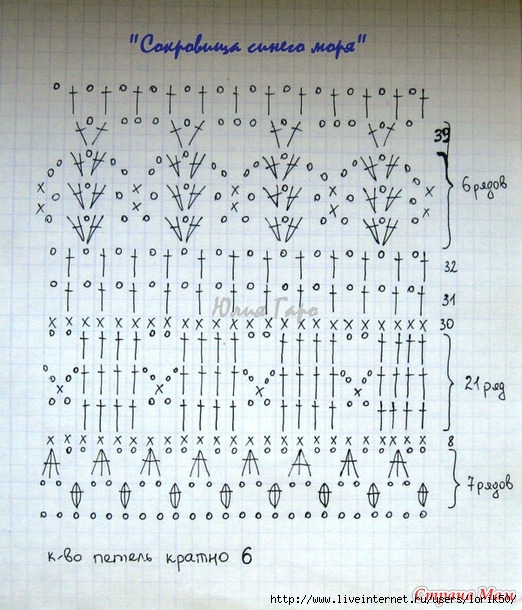 "Сокровища синего моря"
39
6 рядов
32
31
Юлия Гаро
30
21 ряд
8
7 рядов
к-во петель кратно 6
Страна Мам
http://www.liveinternet.ru/users/lorik50/